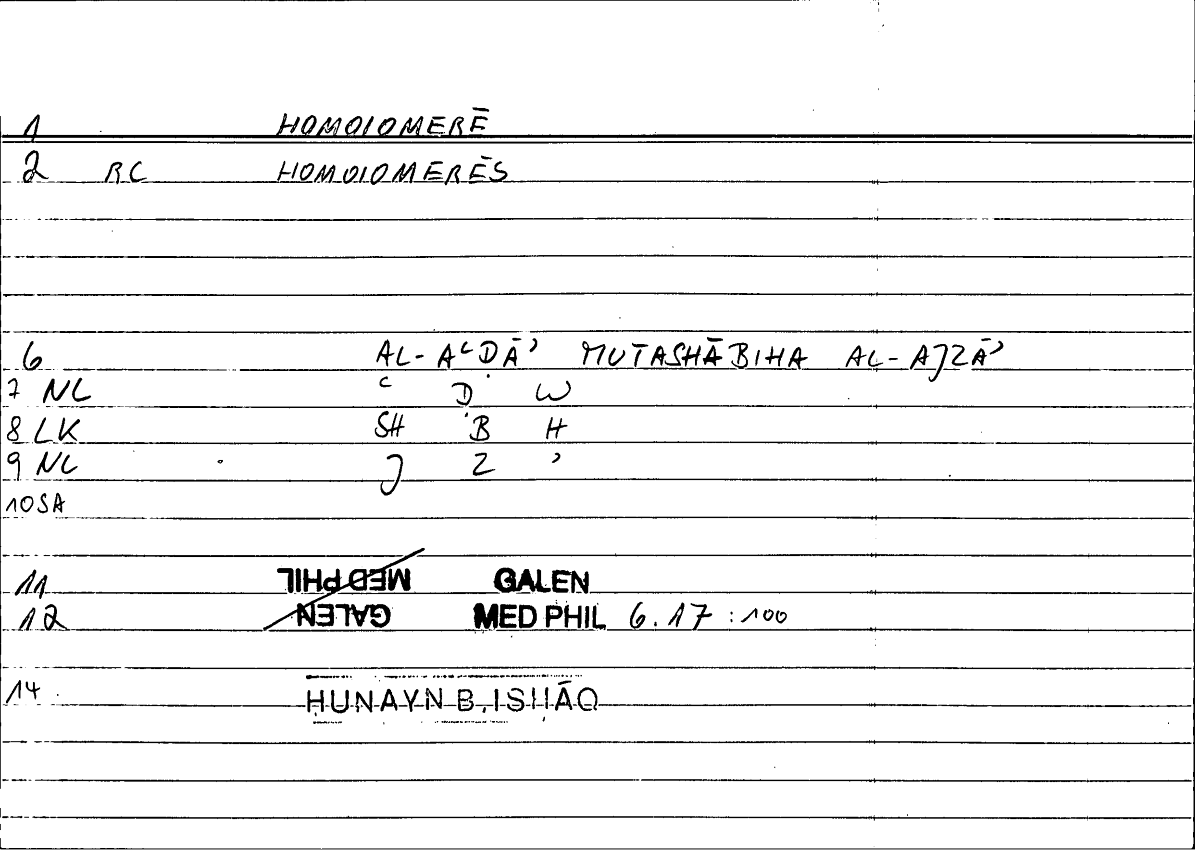 1 HOMOIOMERĒ
2 RC HOMOIOMERĒS
6 AL-AʿḌĀʾ MUTASHĀBIHA AL-AJZĀʾ
7 NL ʿ Ḍ W
8 LK SH B H
9 NL J Z ʾ
10 SA
11 MED PHIL GALEN
12 GALEN MED PHIL 6.17:100
14 ḤUNAYN B. ISḤĀQ